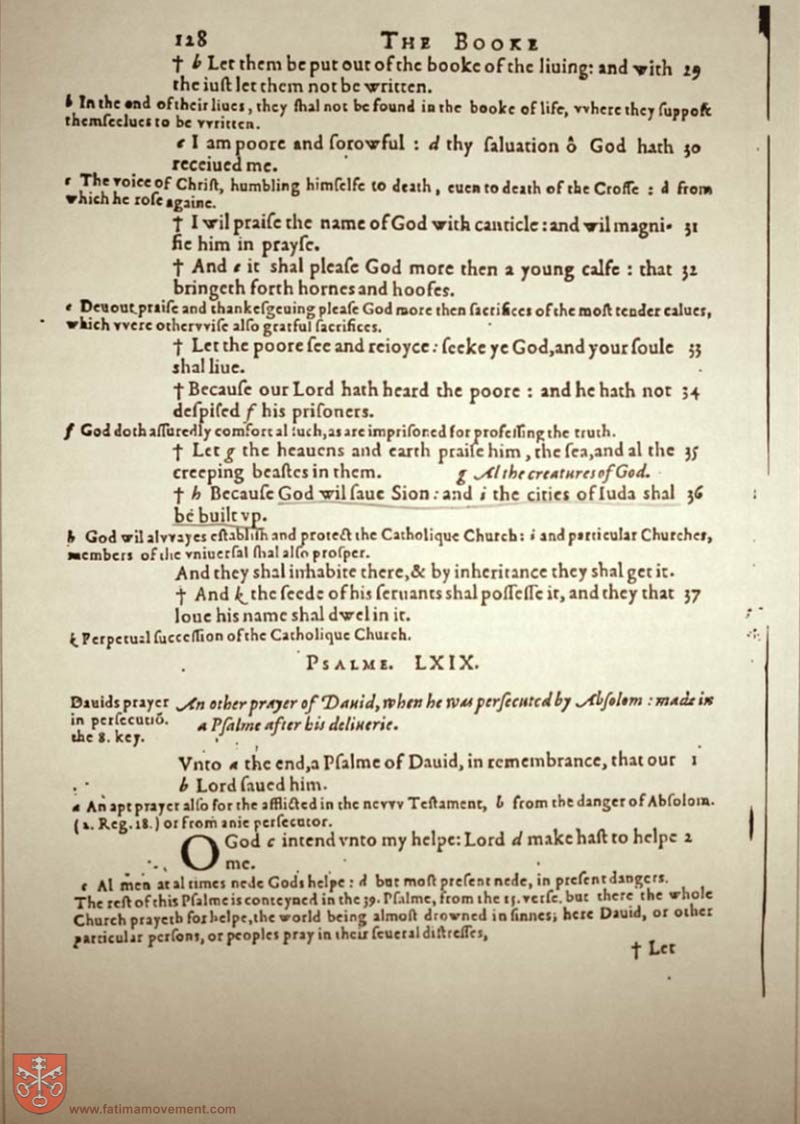 128 THE BOOKE
† b Let them be put out of the booke of the liuing: and with 29
the iuſt let them not be written.
b In the end of their liues, they ſhal not be found in the booke of life, vvhere they ſuppoſe
themſeelues to be vvritten.
c I am poore and ſorowful : d thy ſaluation ô God hath 30
receiued me.
c The voice of Chriſt, humbling himſelfe to death, euen to death of the Croſſe : d from
which he roſe againe.
† I wil praiſe the name of God with canticle: and wil magni- 31
fie him in prayſe.
† And e it shal pleaſe God more then a young calfe : that 32
bringeth forth hornes and hoofes.
e Deuout praiſe and thankeſgeuing pleaſe God more then ſacrifices of the moſt tender calues,
which vvere othervviſe alſo gratful ſacrifices.
† Let the poore ſee and reioyce: ſeeke ye God, and your ſoule 33
shal liue.
† Becauſe our Lord hath heard the poore : and he hath not 34
deſpiſed f his priſoners.
f God doth aſſuredly comfort al ſuch, as are impriſoned for profeſſing the truth.
† Let g the heauens and earth praiſe him, the ſea, and al the 35
creeping beaſtes in them. g Al the creatures of God.
† h Becauſe God wil ſaue Sion: and i the cities of Iuda shal 36
be built vp.
h God wil alvvayes eſtabliſh and protect the Catholique Church: i and particular Churches,
members of the vniuerſal ſhal alſo proſper.
And they shal inhabite there, & by inheritance they shal get it.
† And k the ſeede of his ſeruants shal poſſeſſe it, and they that 37
loue his name shal dwel in it.
k Perpetual ſucceſſion of the Catholique Church.
PSALME. LXIX.
Dauids prayer
in perſecutiõ.
the 8. key.
An other prayer of Dauid, when he was perſecuted by Abſolom : made in
a Pſalme after his deliuerie.
Vnto a the end, a Pſalme of Dauid, in remembrance, that our 1
b Lord ſaued him.
a An apt prayer alſo for the afflicted in the nevvv Teſtament, b from the danger of Abſolom.
(2. Reg. 18.) or from anie perſecutor.
O God c intend vnto my helpe: Lord d make haſt to helpe 2
me.
c Al men at al times nede Gods helpe: d but moſt preſent nede, in preſent dangers.
The reſt of this Pſalme is conteyned in the 39. Pſalme, from the 15. verſe. but there the whole
Church prayeth for helpe, the world being almoſt drowned in ſinnes; here Dauid, or other
particular perſons, or peoples pray in their ſeueral diſtreſſes,
† Let
www.fatimamovement.com